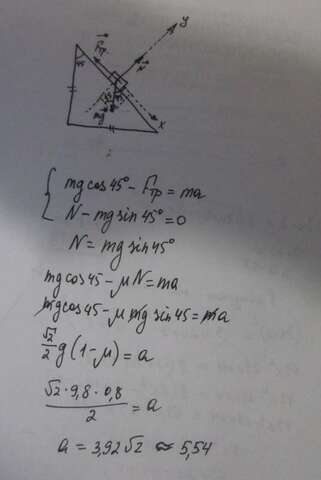 y
Fтр.
N
45
45°
mg
x
mg cos 45° - Fтр = ma
N - mg sin 45° = 0
N = mg sin 45°
mg cos 45 - μN = ma
mg cos 45 - μ mg sin 45 = ma
√2/2 g (1 - μ) = a
√2 · 9,8 · 0,8 / 2 = a
a = 3,92√2 ≈ 5,54